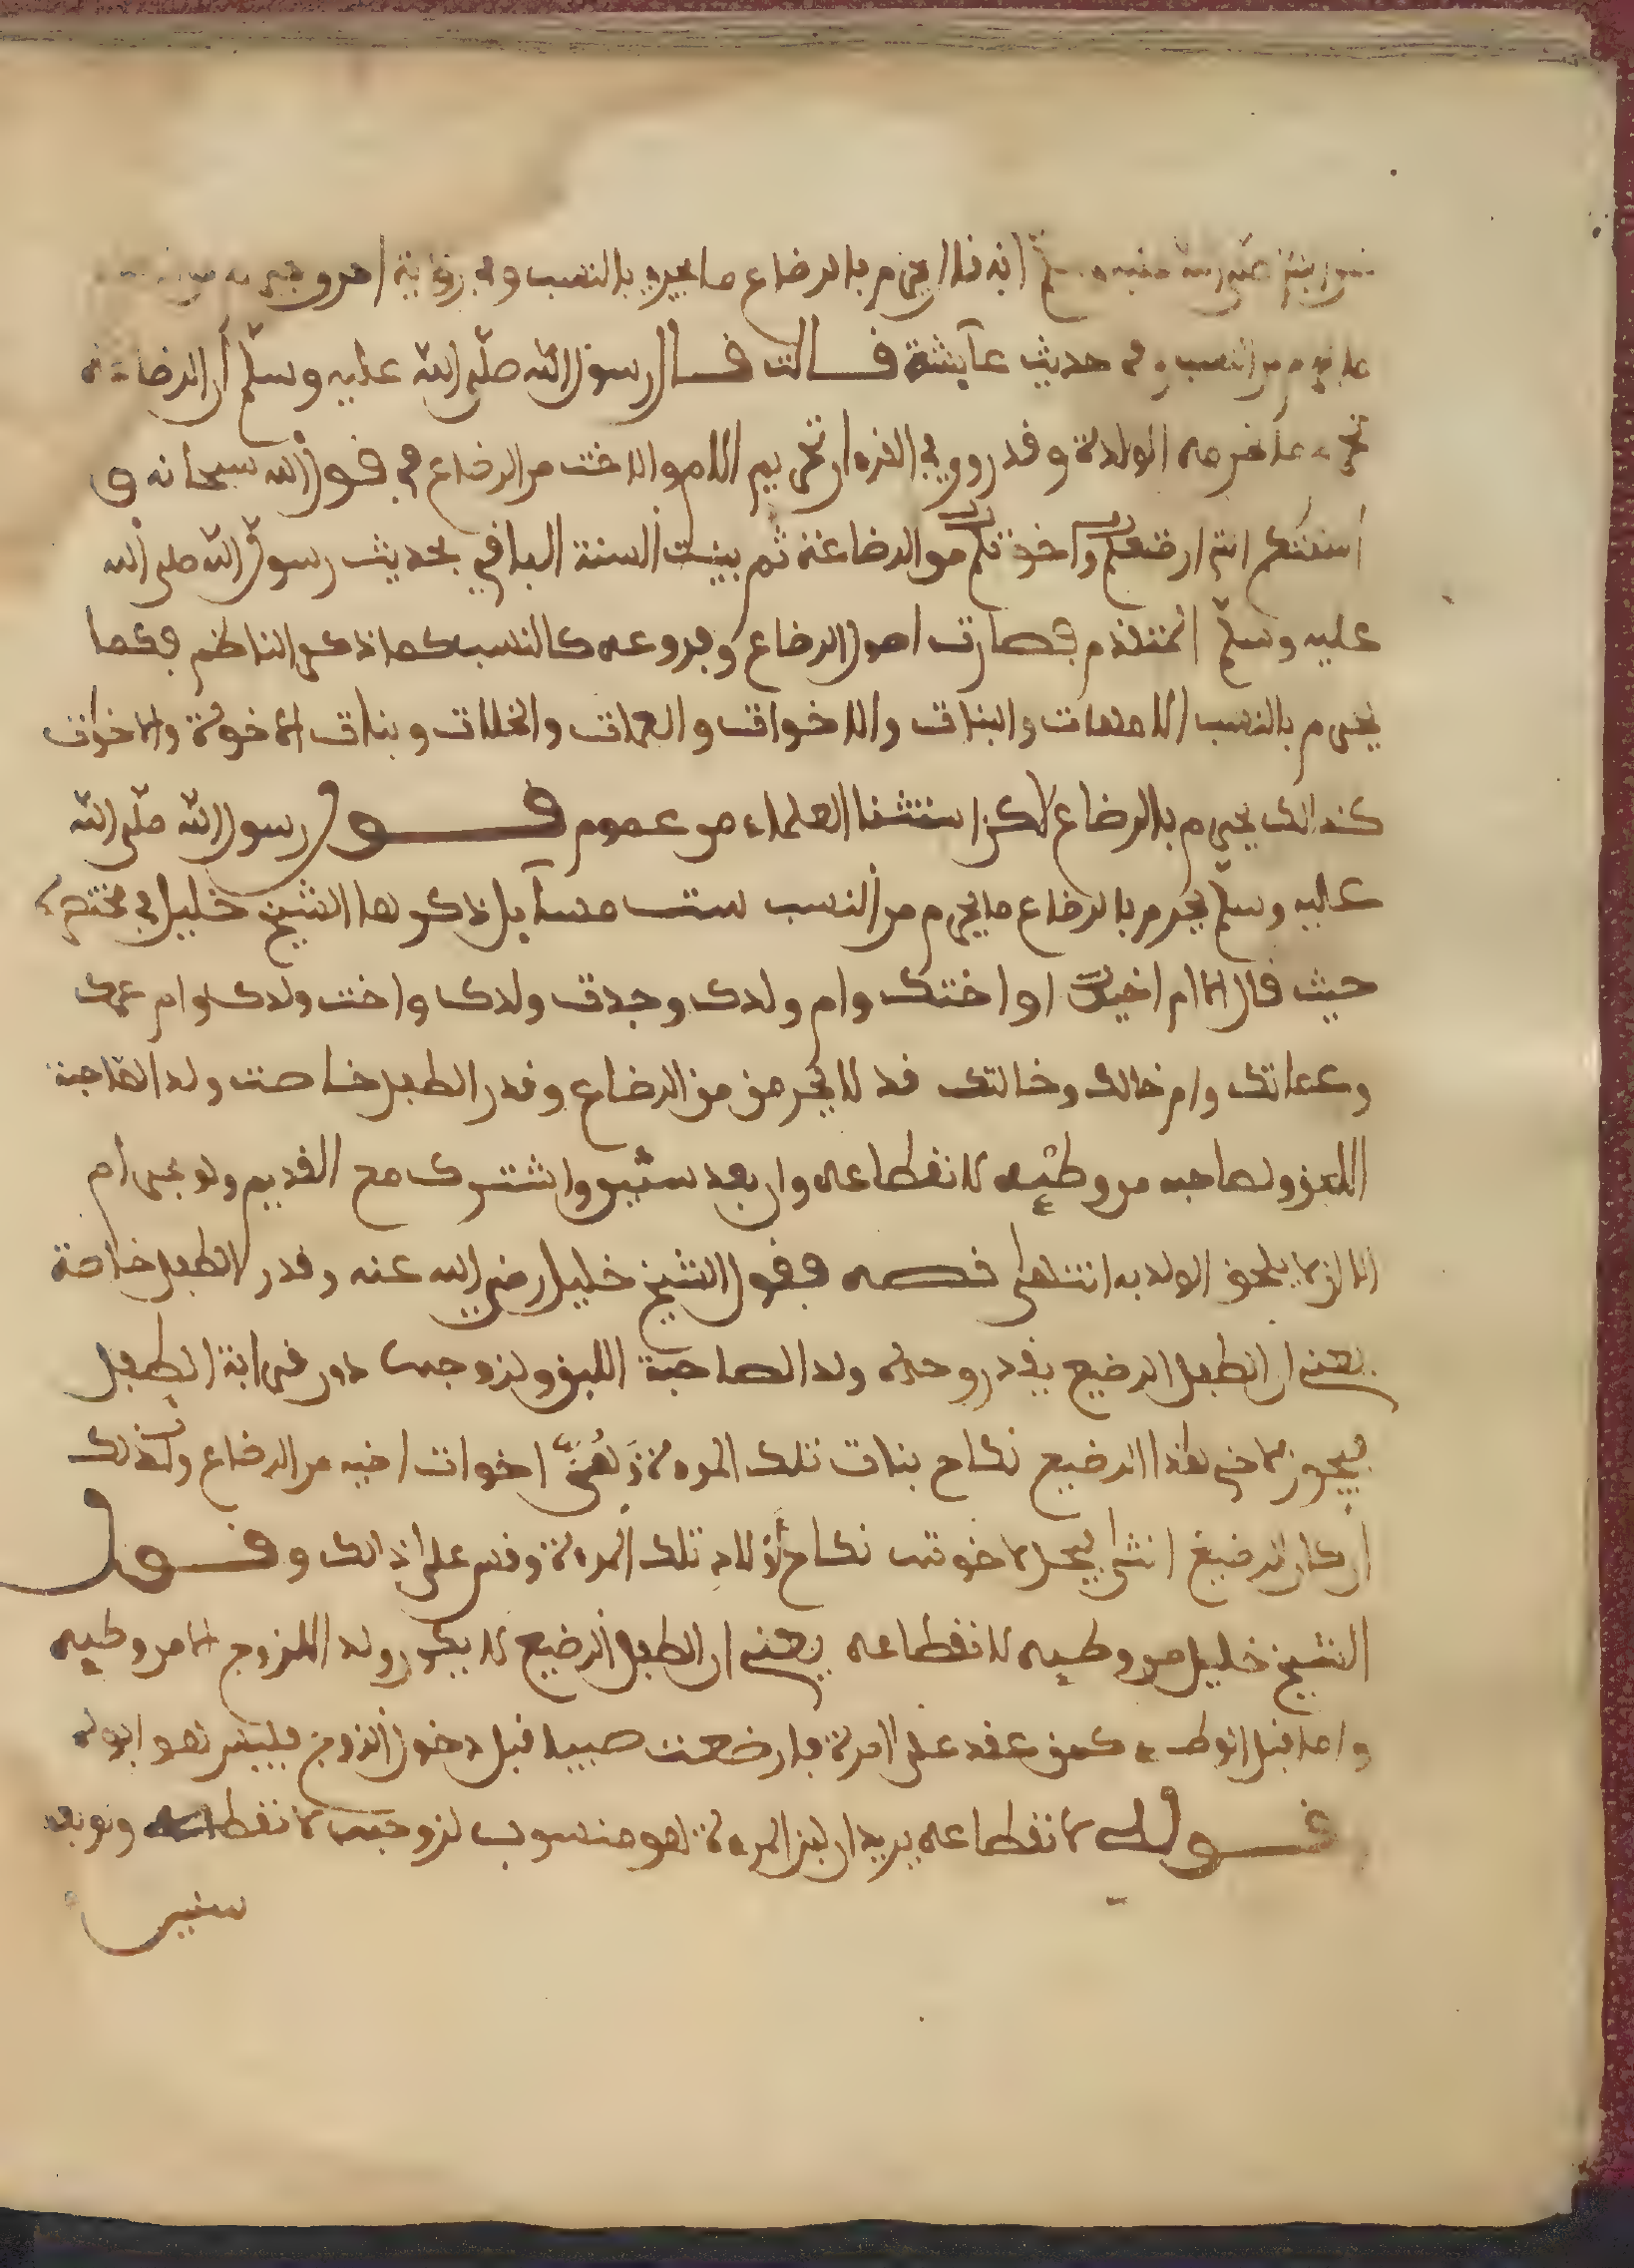 صلى الله عليه وسلم انه قال يحرم بالرضاع ما يحرم بالنسب وفي رواية اخرى يحرم من
ما يحرم من النسب وفي حديث عآيشة قالت قال رسول الله صلى الله عليه وسلم ان الرضاعة
تحرم ما تحرمه الولادة وقد روي في القرءان تحريم الام والاخت من الرضاع في قول الله سبحانه و
امهتكم التي ارضعنكم واخوتكم من الرضاعة ثم بينت السنة الباقي بحديث رسول الله صلى الله
عليه وسلم المتقدم فصارت اصول الرضاع وفروعه كالنسب كما ذكر الناظم فكما
يحرم بالنسب الامهات والبنات والاخوات والعمات والخلات وبنات الاخوة والاخوات
كذالك يحرم بالرضاع لاكن استثنا العلماء من عموم قول رسول الله صلى الله
عليه وسلم يحرم بالرضاع ما يحرم من النسب ست مسآيل ذكرها الشيخ خليل في مختصره
حيث قال الا ام اخيك او اختك وام ولدك وجدت ولدك واخت ولدك وام عمك
وعماتك وام خالك وخالتك فقد لا يحرمن من الرضاع وقدر الطفل خاصت ولد الصاحبة
اللبن ولصاحبه من وطئه لانقطاعه وان بعد سنين واشترك مع القديم ولو بحرام
الا ان لا يلحق الولد به انتهى نصه فقول الشيخ خليل رضي الله عنه وقدر الطفل خاصة
يعني ان الطفل الرضيع يقدر وحده ولد الصاحبة اللبن ولزوجها دون قرابة الطفل
فيجوز لاخ هذا الرضيع نكاح بنات تلك المرءة وَهُنَّ اخوات اخيه من الرضاع وكذلك
ان كان الرضيع انثى يحل لاخوتها نكاح اولاد تلك المرءة وقس على ذالك وقول
الشيخ خليل من وطيه لانقطاعه يعني ان الطفل الرضيع لا يكون ولد اللزوج الا من وطيه
واما قبل الوطء كمن عقد على امرءة فارضعت صبيا قبل دخول الزوج فليس هو ابوه
قوله لانقطاعه يريد ان لبن المرءة هو منسوب لزوجها لانقطاعه ولو بعد
سنين